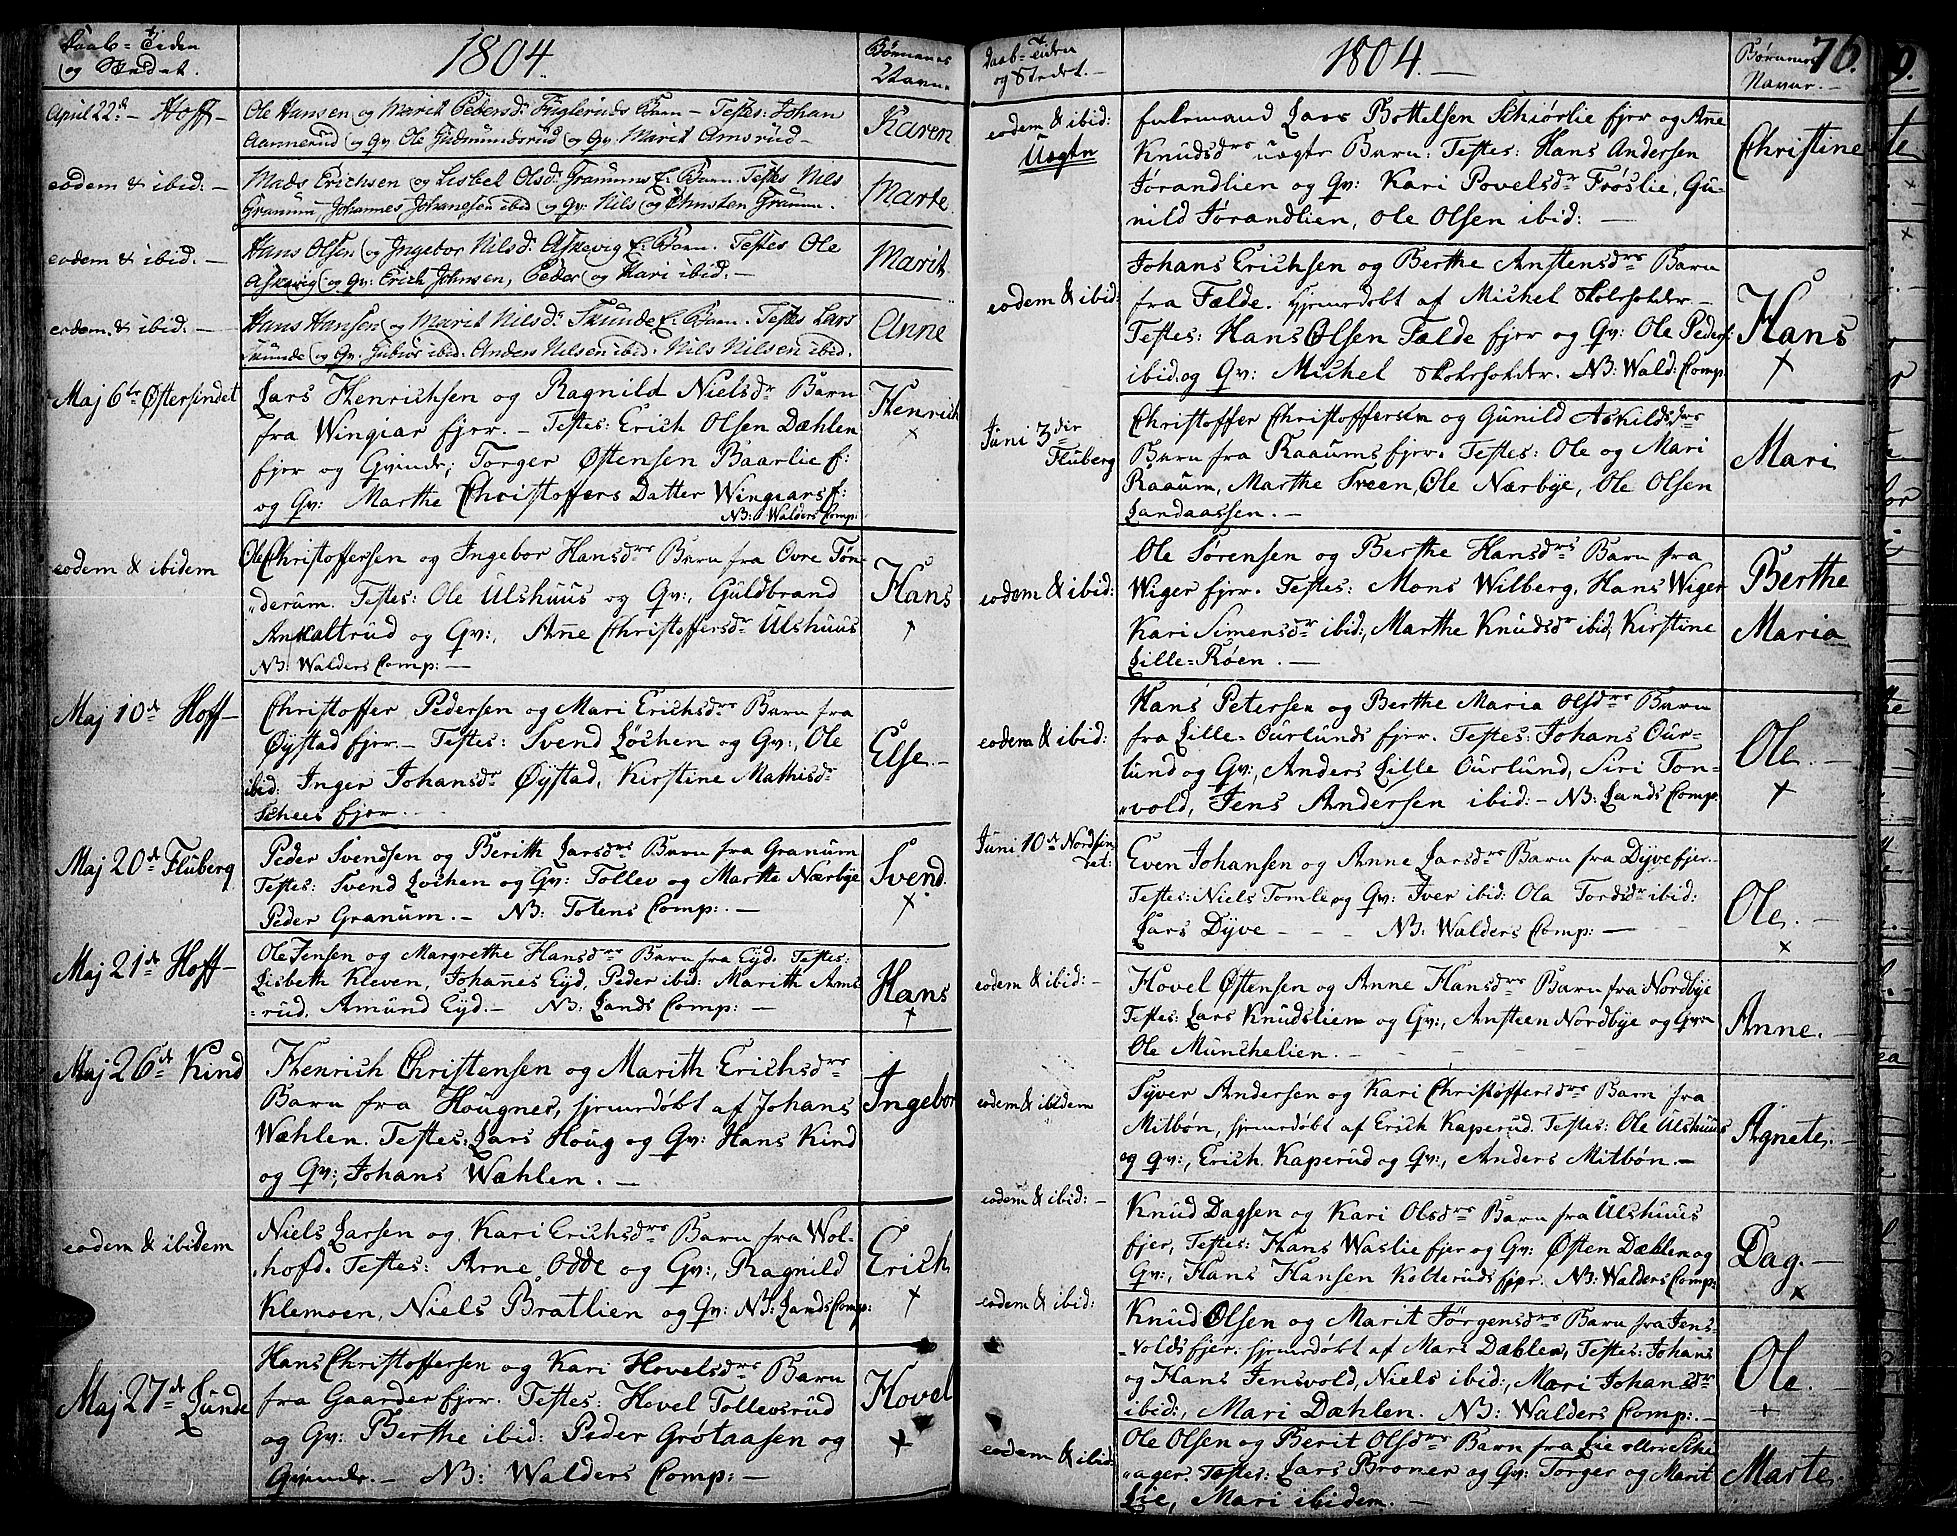 Daab=Tiden
og Stedet.
1804.
Børnenes
Navn.
April 22d — Hoff —
Ole Hansen og Marit Pedersd: Fugleruds Barn — Testes: Johan
Aannerud og Qv: Ole Gudmundsrud og Qv: Marit Amsrud —
Karen
eodem & ibid: —
Mads Erichsen og Lisbet Olsd: Granums E: Barn. Testes Nils
Granum, Johannes Johanesen ibid og Qv: Nils og Christen Granum.
Marte
eodem & ibid. —
Hans Olsen og Ingebor Nilsd: Askevig E: Barn. Testes Ole
Askevig og Qv: Erich Johnsen, Peder og Kari ibid. —
Marit
eodem. & ibid. —
Hans Hansen og Marit Nilsd: Skunde E: Barn. Testes Lars
Skunde og Qv. Gubiør ibid: Anders Nilsen ibid: Nils Nilsen ibid.
Anne
Maj 6te Østersindet
Lars Henrichsen og Ragnild Nielsdr Barn
fra Wingiar fjer. — Testes: Erich Olsen Dæhlen
fjer og Qvinde, Torger Østensen Baarlie f:
og Qv: Marthe Christoffers Datter Wingiars f:
NB: Walders Comp:
Henrich
×
eodem & ibidem
Ole Christoffersen og Ingebor Hansdrs Barn fra Øvre Tøn-
derum. Testes: Ole Ulshuus og Qv:, Guldbrand
Ankaltrud og Qv:, Anne Christoffersdr Ulshuus
NB: Walders Comp: —
Hans
+
Maj 10d Hoff —
Christoffer Pedersen og Mari Erichsdrs Barn fra
Øystad fjer. — Testes: Svend Løchen og Qv:, Ole
ibid: Inger Johansdr Øystad, Kirstine Mathisdr
Schees fjer. . .
Else. —
Maj 20d Fluberg
Peder Svendsen og Berith Larsdrs Barn fra Granum
Testes: Svend Løchen og Qv: Tollev og Marthe Nærbye
Peder Granum. — NB: Totens Comp: . —
Svend.
×
Maj 21d Hoff —
Ole Jensen og Margrethe Hansdrs Barn fra Eyd. Testes:
Lisbeth Kleven, Johannes Eyd, Peder ibid: Marith Ams
=rud. Amund Eyd. — NB: Lands Comp: —
Hans
+
Maj 26d Kind
Henrich Christensen og Marith Erichsdrs
Barn fra Hougner, hjemdøbt af Johans
Wæhlen. Testes: Lars Houg og Qv: Hans Kind
og Qv: Johans Wæhlen. —
Ingebor
eodem & ibidem
Niels Larsen og Kari Erichsdrs Barn fra Wol-
hofd. Testes: Arne Odde og Qv:, Ragnild
Klemoen, Niels Bratlien og Qv: NB: Lands Comp:
Erich
×
Maj 27d Lunde
Hans Christoffersen og Kari Hovelsdrs Barn
fra Gaarder fjer. Testes: Hovel Tollevsrud
og Qv: Berthe ibid: Peder Grøtaasen og
Qvinde. — NB: Walders Comp: —
Hovel
×
Daab=Tiden
og Stedet. —
1804. —
Børnenes
Navne. —
76.
eodem & ibid:
Uægte
Lars Bottelsen Schiørlie fjer og Ane
Knudsdrs uægte Barn: Testes: Hans Andersen
Jørandlien og Qv: Kari Povelsdr Frøslie, Gu-
nild Jørandlien, Ole Olsen ibid: —
Christine
eodem & ibid:
Johans Erichsen og Berthe Anstensdrs Barn
fra Fælde. hjemdøbt af Michel Skoleholder. —
Testes: Hans Olsen Fælde fjer og Qv: Ole Peders:
ibid: og Qv: Michel Skoleholder. NB: Wald: Comp:
Hans
×
Juni 3die
Fluberg
Christoffer Christoffersen og Gunild Askildsdrs
Barn fra Raaums fjer. Testes: Ole og Mari
Raaum, Marthe Sveen, Ole Nærbye, Ole Olsen
Landaassen. —
Mari
eodem & ibid:
Ole Sørensen og Berthe Hansdrs Barn fra
Wiger fjer. Testes: Mons Wilberg, Hans Wiger
Kari Simensdr ibid:, Marthe Knudsdr ibid, Kirstine
Lille=Røen. —
Berthe
Maria
eodem & ibid:
Hans Petersen og Berthe Maria Olsdrs Barn
fra Lille-Ourlunds fjer. Testes: Johans Our-
lund og Qv:, Anders Lille Ourlund, Siri Ton-
vold, Jens Andersen ibid: — NB: Lands Comp:
Ole. —
×
Juni 10d Nordsin
det:
Even Johansen og Anne Larsdrs Barn fra Dyve fjer.
Testes: Niels Tomle og Qv: Iver ibid: Ola Tordsdr ibid:
Lars Dyve - - - NB: Walders Comp: —
Ole. —
×
eodem & ibid: —
Hovel Østensen og Anne Hansdrs Barn fra Nordbye
Testes: Lars Knudslien og Qv:, Ansteen Nordbye og Qv:
Ole Munchelien. —
Anne. —
eodem & ibidem
Syver Andersen og Kari Christoffersdrs Barn fra
Mitbøn, hjemdøbt af Erich Kaperud. Testes: Ole Ulshuus
og qv:, Erich Kaperud og Qv:, Anders Mitbøn. —
Agnete. —
eodem & ibid: —
Knud Dagsen og Kari Olsdrs Barn fra Ulshuus
fjer, Testes: Hans Waslie fjer og Qv: Østen Dæhlen og
Qv:, Hans Hansen Kolteruds fjer. NB: Walders Comp:
Dag. —
×
eodem & ibid:
Knud Olsen og Marit Jørgensdrs Barn fra Jens-
volds fjer: hjemdøbt af Mari Dæhlen, Testes: Johans
og Hans Jensvold, Niels ibid:, Mari Johansdr
ibid:, Mari Dæhlen. NB: Walders Comp: . —
Ole. —
+
eodem & ibid:
Ole Olsen og Berit Olsdrs Barn fra Lie eller Sche
ager. Testes: Lars Broner og Qv: Torger og Marit
Lie, Mari ibidem. —
Marte.